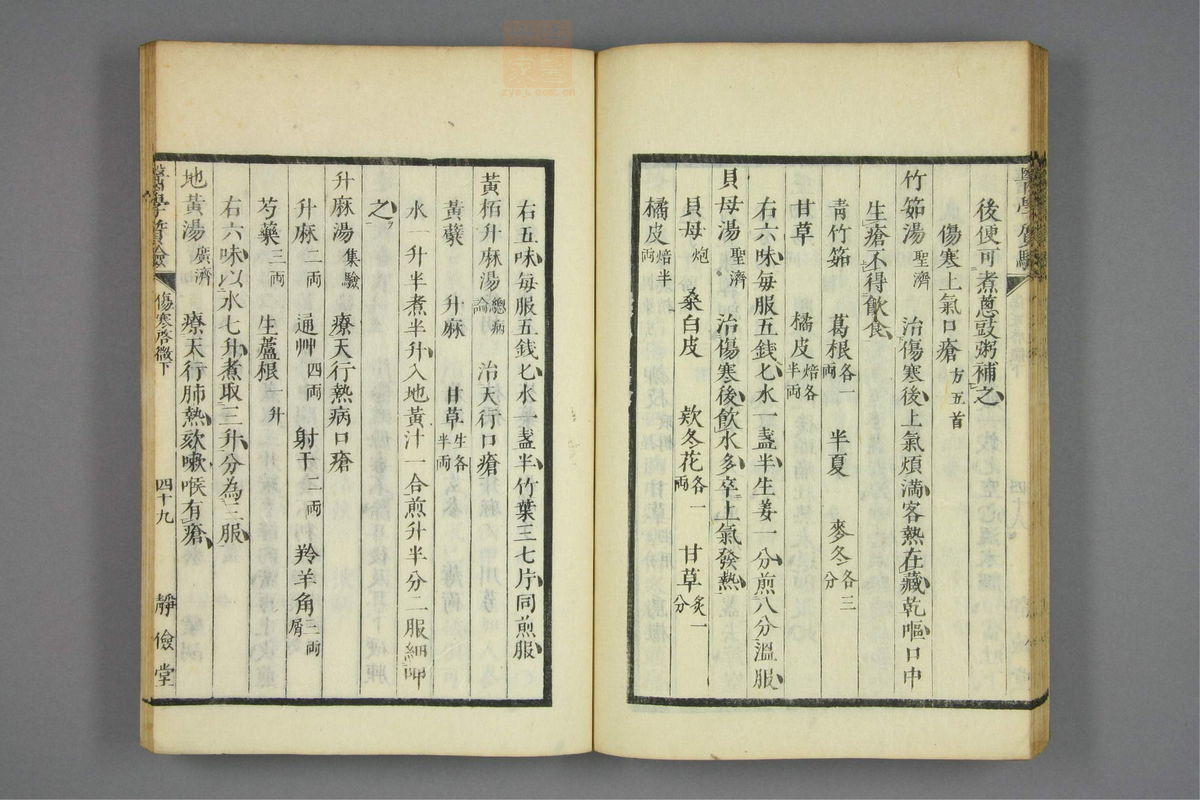 後便可煮蔥豉粥補之
傷寒上氣口瘡方五首
竹筎湯聖濟 治傷寒後上氣煩滿客熱在藏乾嘔口中
生瘡不得飲食
青竹筎 葛根各一両 半夏 麥冬各三分
甘草 橘皮焙各半両
右六味每服五錢匕水一盞半生姜一分煎八分溫服
貝母湯聖濟 治傷寒後飲水多卒上氣發熱
貝母炮 桑白皮 欵冬花各一両 甘草炙一分
橘皮焙半両
右五味每服五錢匕水一盞半竹葉三七片同煎服
黃栢升麻湯總病論 治天行口瘡
黃蘗 升麻 甘草生各半両
水一升半煮半升入地黃汁一合煎升半分二服細呷
之
升麻湯集驗 療天行熱病口瘡
升麻二両 通艸四両 射干二両 羚羊角三両屑
芍藥三両 生蘆根一升
右六味以水七升煮取三升分為三服
地黃湯廣濟 療天行肺熱欬嗽喉有瘡
傷寒啓微下 四十九 靜儉堂
zysj.com.cn